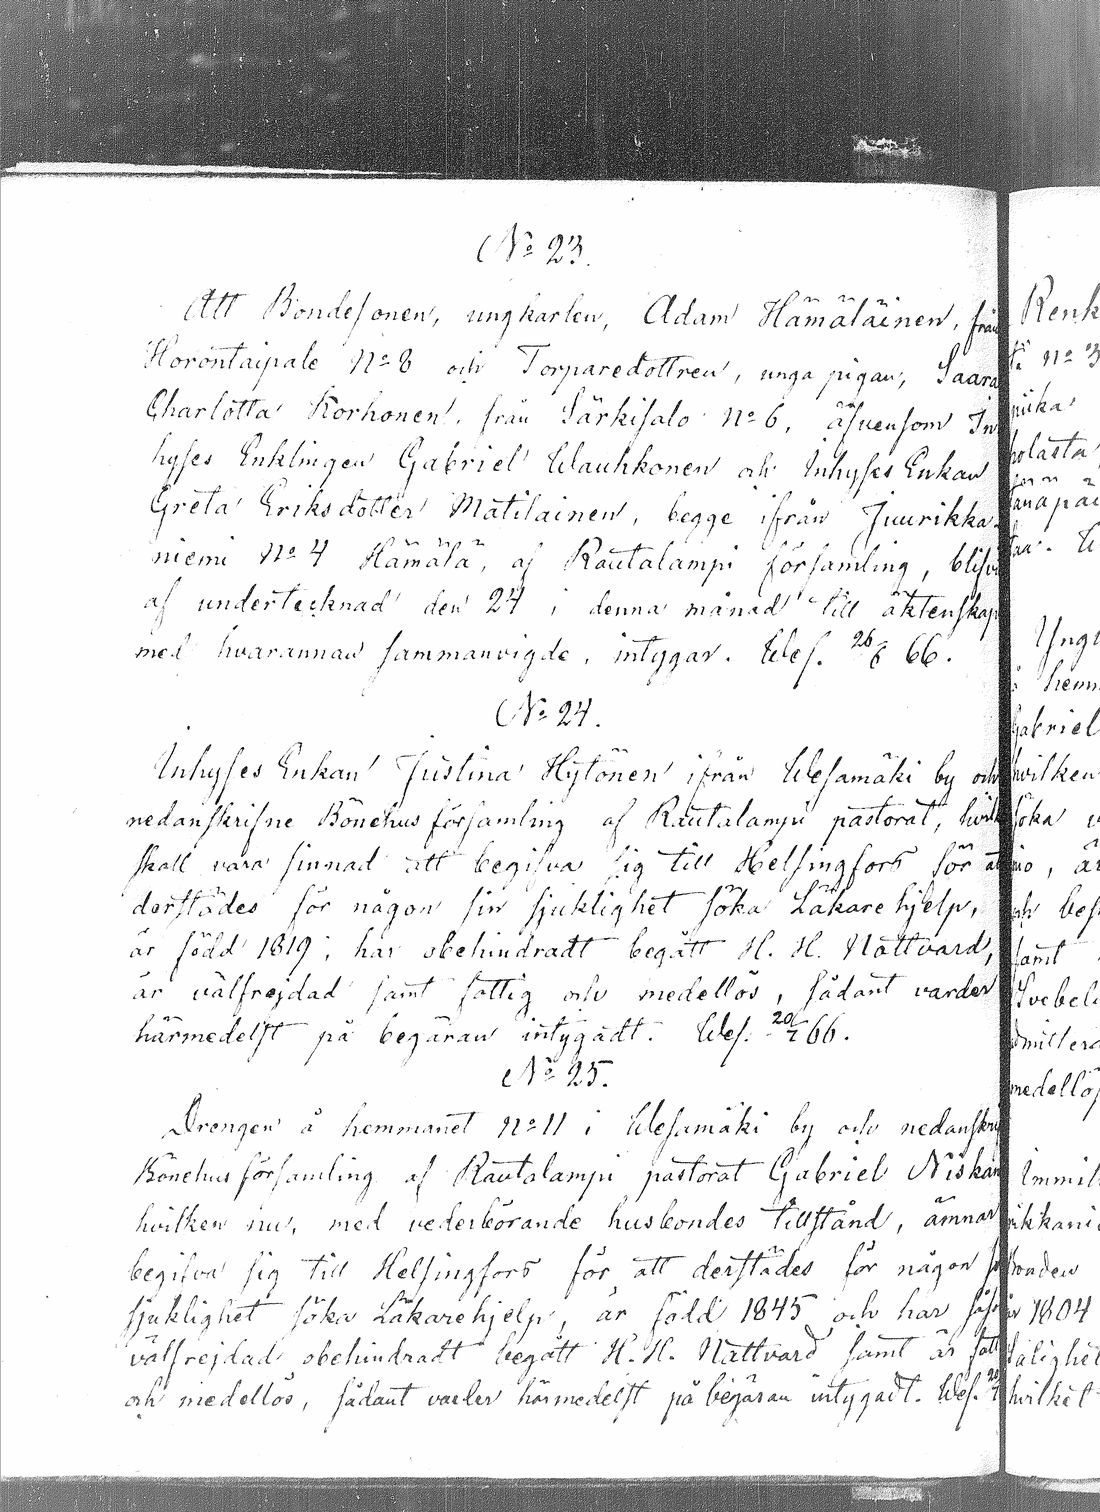 No 23.
Att Bondesonen, ungkarlen, Adam Hämäläinen, från
Horontaipale No 8 och Torparedottren, unga pigan, Saara
Charlotta Korhonen, från Särkisalo No 6, äfvensom In
hyses Enklingen Gabriel Wauhkonen och Inhyses Enkan
Greta Eriksdotter Matilainen, begge ifrån Juurikka-
niemi No 4 Hämälä, af Rautalampi församling, blifvit
af undertecknad den 24 i denna månad till äktenskap
med hvarannan sammanvigde, intygar. Wes. 26/6 66.
No 24.
Inhyses Enkan Justina Hytönen ifrån Wesamäki by och
nedanskrifne Bönehusförsamling af Rautalampi pastorat, hvilk
skall vara sinnad att begifva sig till Helsingfors för at
derstädes för någon sin sjuklighet söka Läkarehjelp,
är född 1819, har obehindradt begått H. H. Nattvard,
är välfrejdad samt fattig och medellös, sådant varder
härmedelst på begäran intygadt. Wes. 20/7 66.
No 25.
Drengen å hemmanet No 11 i Wesamäki by och nedanskrif
Bönehusförsamling af Rautalampi pastorat Gabriel Niskan
hvilken nu, med vederbörande husbondes tillstånd, ämnar
begifva sig till Helsingfors för att derstädes för någon
sjuklighet söka Läkarehjelp, är född 1845 och har såso
välfrejdad obehindradt begått H. H. Nattvard samt är fatt
och medellös, sådant varder härmedelst på begäran intygadt. Wes.
Renk
No 3
holasta
Yngr
hem
Gabriel
hvilken
söka
samt
Svebeli
medellös
Immil
1804
hvilket